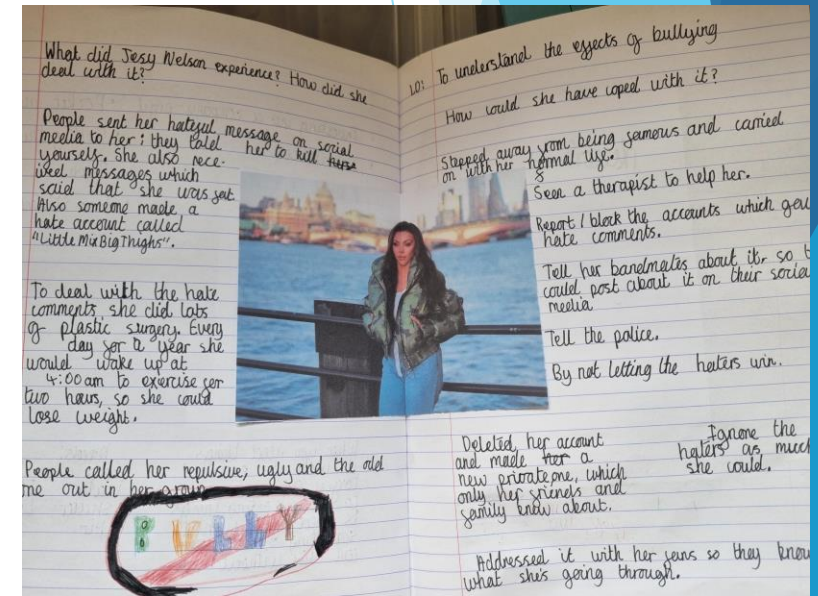 What did Jesy Nelson experience? How did she
deal with it?
People sent her hateful message on social
media to her; they told her to kill
yourself. She also rece-
ived messages which
said that she was fat.
Also someone made a
hate account called
"Little Mix Big Thighs".
To deal with the hate
comments, she did lots
of plastic surgery. Every
day for a year she
would wake up at
4:00am to exercise for
two hours, so she could
lose weight.
People called her repulsive, ugly and the odd
one out in her group
BULLY
LO: To understand the effects of bullying
How could she have coped with it?
Stepped away from being famous and carried
on with her normal life.
Seen a therapist to help her.
Report / block the accounts which
hate comments.
Tell her bandmates about it, so
could post about it on their social
media
Tell the police.
By not letting the haters win.
Deleted her account
and made a
new private one, which
only her friends and
family knew about.
Ignore the
haters as much
she could.
Addressed it with her fans so they know
what she's going through.